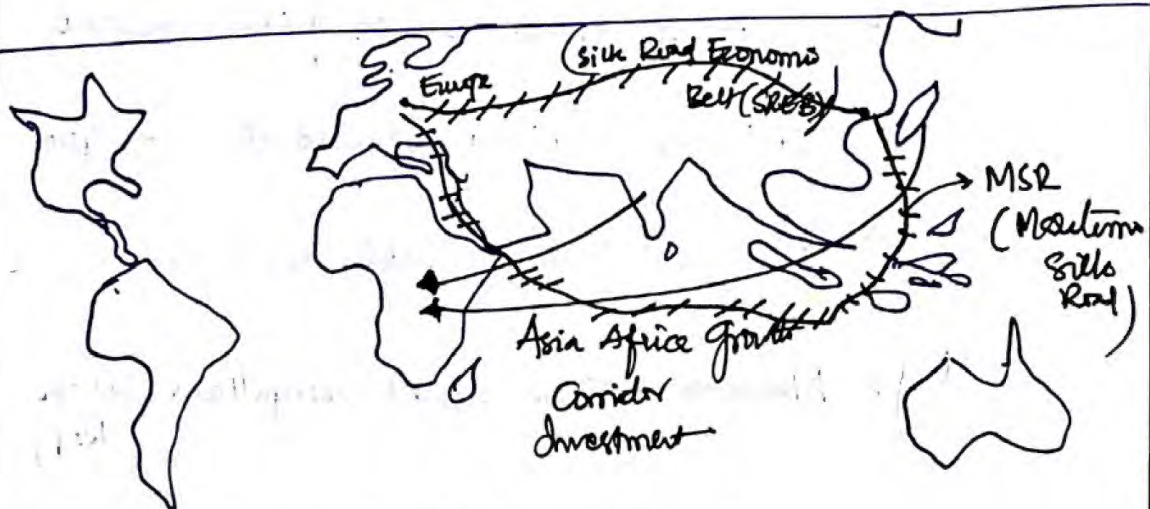 (Silk Road Economic
Belt (SREB))
Europe
MSR
(Maritime
Silk
Road)
Asia Africa Growth
Corridor
Investment